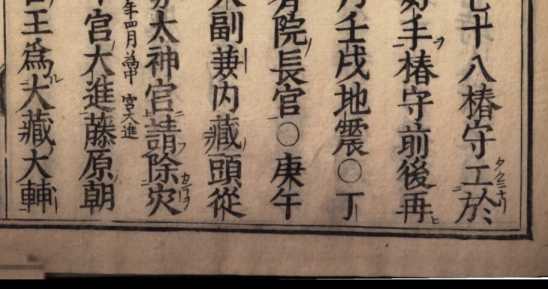 十八椿守工於
手椿守前後再
月壬戌地震〇丁
院長官〇庚午
副兼内藏頭從
太神宮請除災
年四月為中
宮大進
宮大進藤原朝
王爲大藏大輔